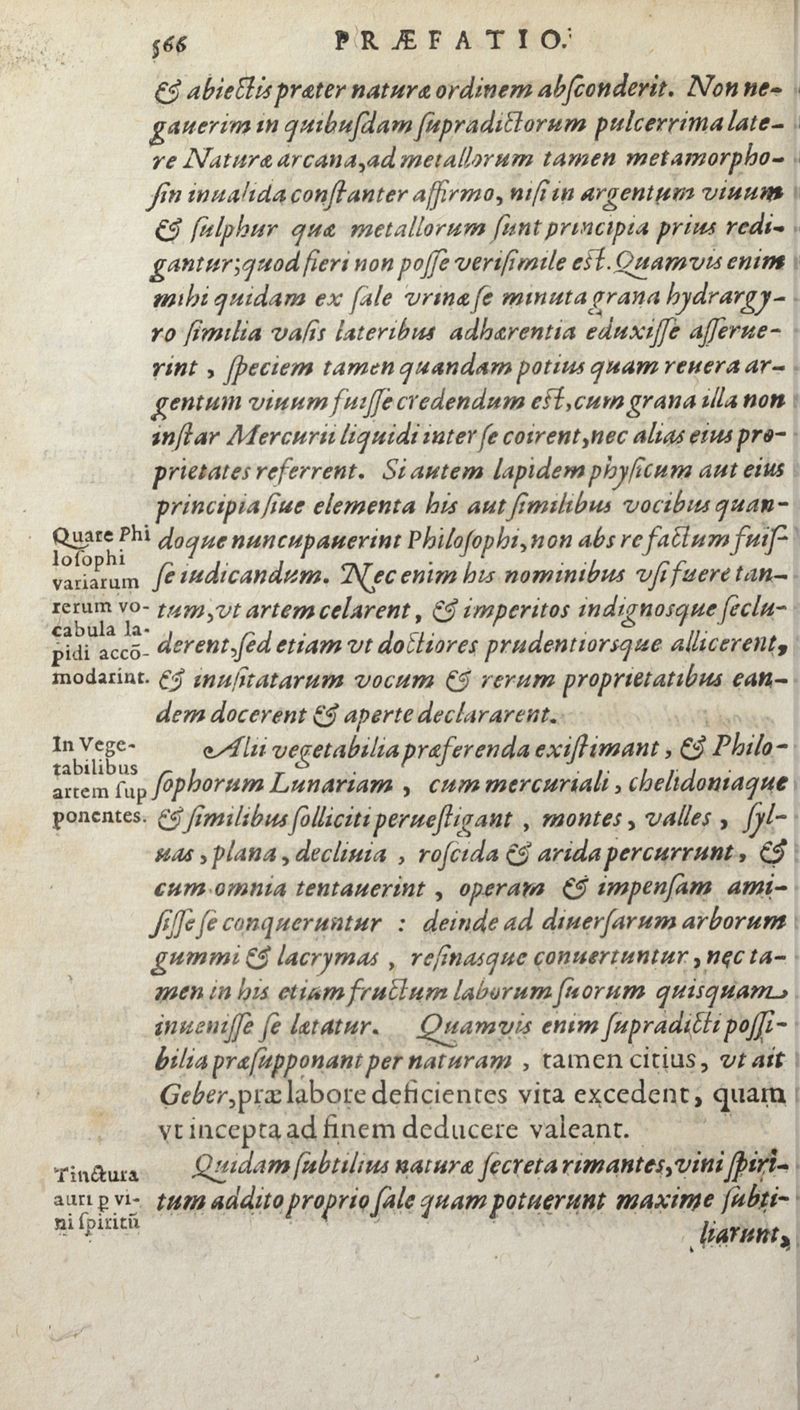 566 PRÆFATIO.
& abiectis præter naturæ ordinem abſconderit. Non ne-
gauerim in quibuſdam ſupradictorum pulcerrima late-
re Naturæ arcana, ad metallorum tamen metamorpho-
ſin inualida conſtanter affirmo, niſi in argentum viuum
& ſulphur quæ metallorum ſunt principia prius redi-
gantur; quod fieri non poſſe veriſimile eſt. Quamvis enim
mihi quidam ex ſale vrinæ ſe minuta grana hydrargy-
ro ſimilia vaſis lateribus adhærentia eduxiſſe aſſerue-
rint, ſpeciem tamen quandam potius quam reuera ar-
gentum viuum fuiſſe credendum eſt, cum grana illa non
inſtar Mercurii liquidi inter ſe coirent, nec alias eius pro-
prietates referrent. Si autem lapidem phyſicum aut eius
principia ſiue elementa his aut ſimilibus vocibus quan-
Quare Phi
loſophi
variarum
rerum vo-
cabula la-
pidi accō-
modarint.
doque nuncupauerint Philoſophi, non abs re factum fuiſ-
ſe iudicandum. Nec enim his nominibus vſi fuere tan-
tum, vt artem celarent, & imperitos indignosque ſeclu-
derent, ſed etiam vt doctiores prudentiorsque allicerent,
& inuſitatarum vocum & rerum proprietatibus ean-
dem docerent & aperte declararent.
In Vege-
tabilibus
artem ſup
ponentes.
Alii vegetabilia præferenda exiſtimant, & Philo-
ſophorum Lunariam, cum mercuriali, chelidoniaque
& ſimilibus ſolliciti perueſtigant, montes, valles, ſyl-
uas, plana, decliuia, roſcida & arida percurrunt, &
cum omnia tentauerint, operam & impenſam ami-
ſiſſe ſe conqueruntur : deinde ad diuerſarum arborum
gummi & lacrymas, reſinasque conuertuntur, nec ta-
men in his etiam fructum laborum ſuorum quisquam
inueniſſe ſe lætatur. Quamvis enim ſupradicti poſſi-
bilia præſupponant per naturam, tamen citius, vt ait
Geber, præ labore deficientes vita excedent, quam
vt incepta ad finem deducere valeant.
Tinctura
auri p vi-
ni ſpiritū
Quidam ſubtilius naturæ ſecreta rimantes, vini ſpiri-
tum addito proprio ſale quam potuerunt maxime ſubti-
liarunt,